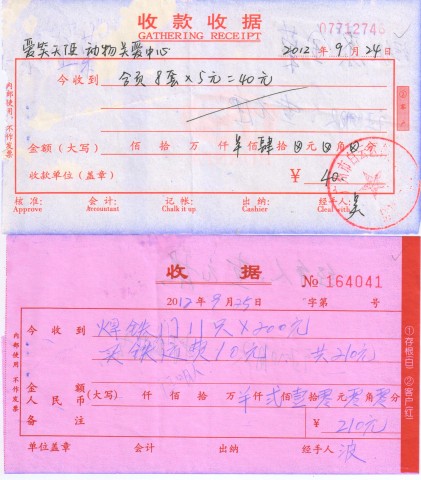 收款收据
GATHERING RECEIPT
07712746
爱笑天使 动物关爱中心
2012 年 9 月 24 日
今收到 8套×5元=40元
金额（大写） 佰 拾 万 仟 佰 肆 拾 0 元 0 角 0 分
收款单位（盖章） ¥ 40
内部使用、不作发票
核准: 会计: 记帐: 出纳: 经手人:
Approve Accountant Chalk it up Cashier Deal with
收据
№ 164041
2012 年 9 月 25 日 字第 号
今收到 焊铁门1只×200元
铁运费10元 共210元
金额
人民币 （大写） 仟 佰 拾 万 仟 贰 佰 壹 拾 零 元 零 角 零 分
备注 ¥ 210元
单位盖章 会计 出纳 经手人 波
内部使用 不作发票
①存根(白) ②客户(红)